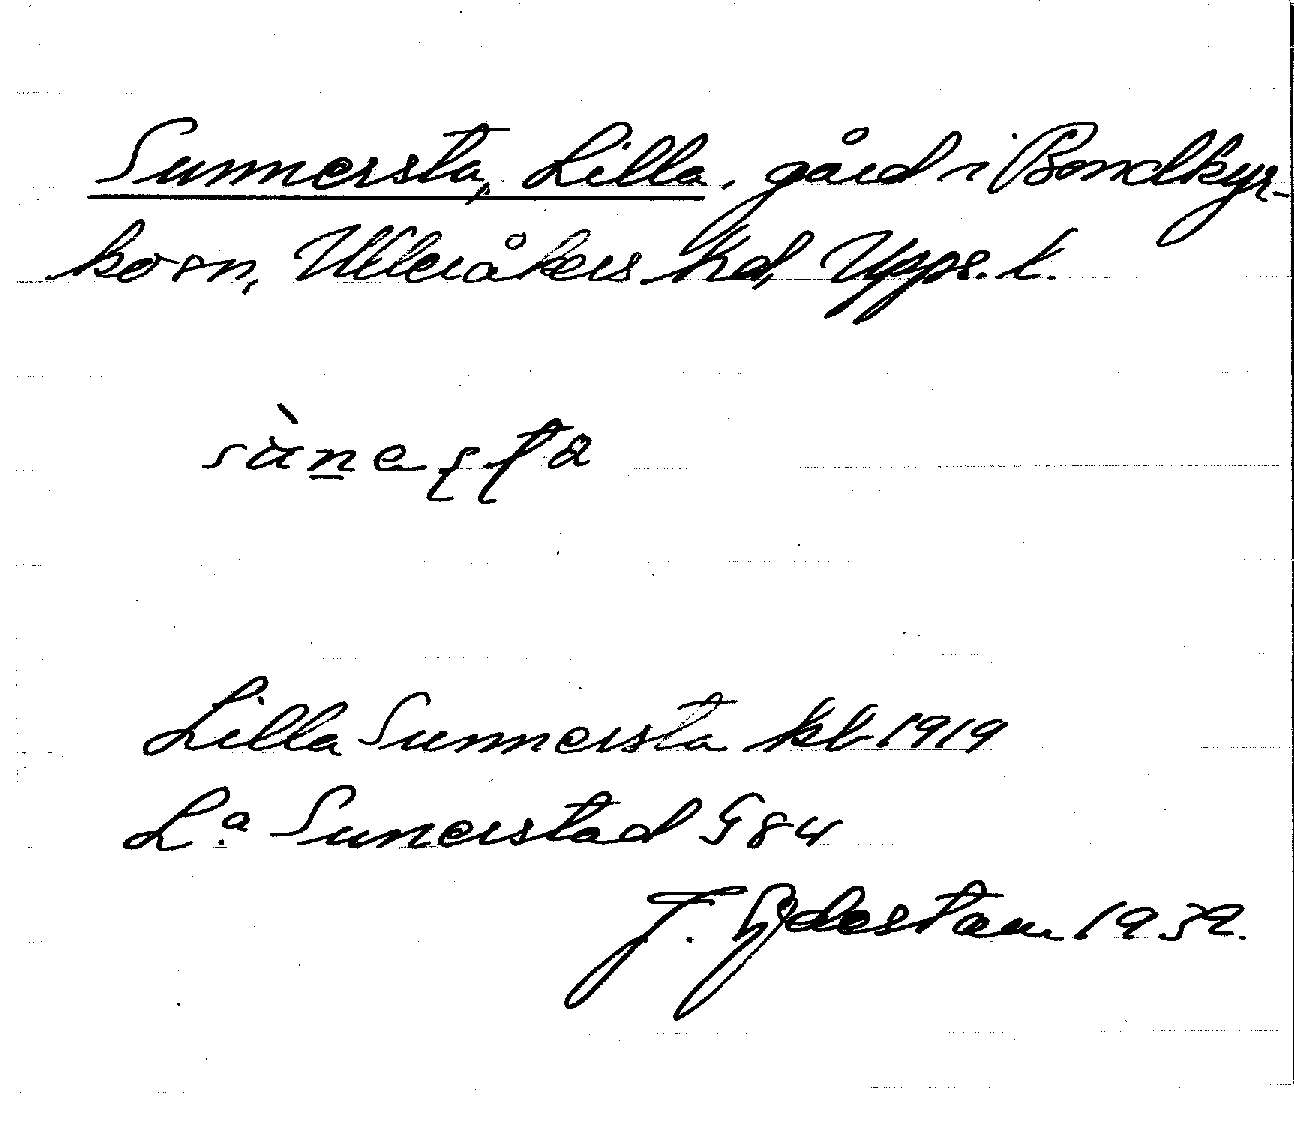 Sunnersta, Lilla, gård i Bondkyr-
ko sn, Ulleråkers hd, Upps. l.
Lilla Sunnersta kb 1919
L:a Sunerstad G 84
1932.